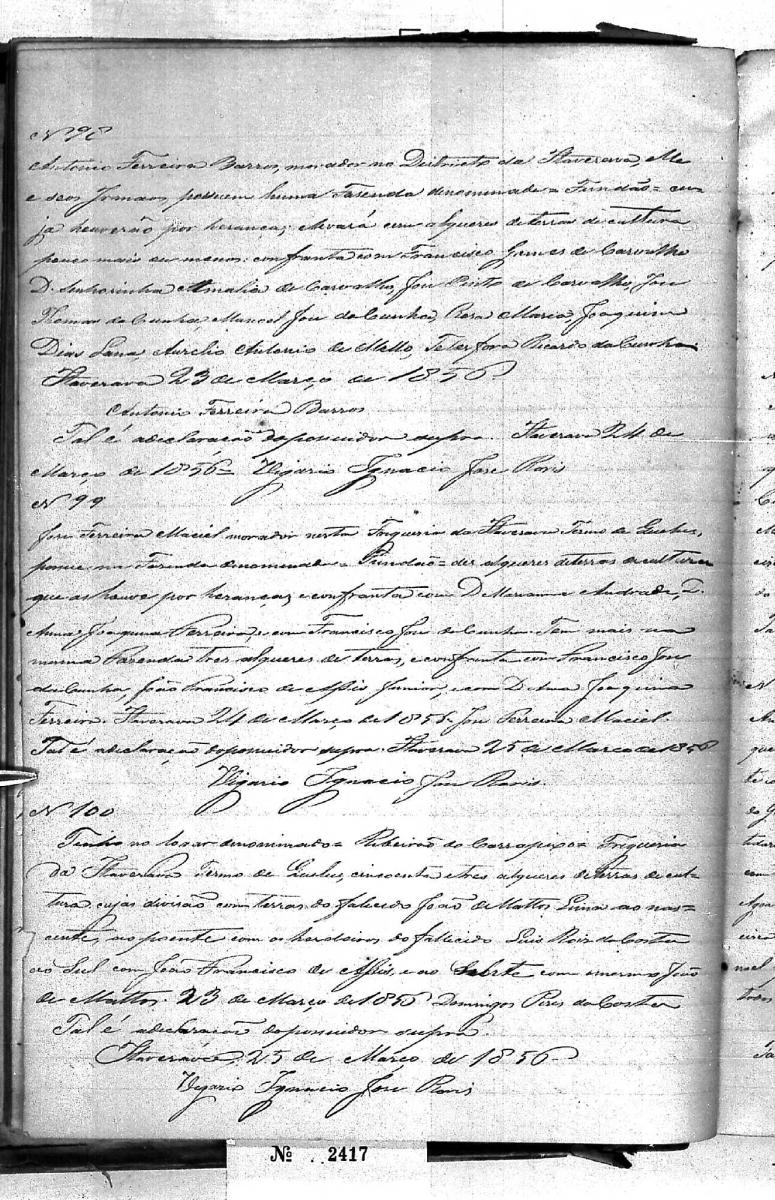 Nº 98
Antonio Ferreira Barros, morador no Districto da Itaverava, elle
e seos Irmaos, possuem huma Fasenda denominada = Fundão = cu-
ja houverão por herança; elevará cem alqueres de terras de cultura
pouco mais ou menos: confronta com Francisco Gomes de Carvalho
D. Senhorinha Amalia de Carvalho, Jose Pinto de Carvalho, Jose
Thomas da Cunha, Manoel Jose da Cunha, Rosa Maria, Joaquim
Dias Lana Aurelio Antonio de Mello, Telesfora Ricardo da Cunha.
Itaverava 23 de Março de 1856
Antonio Ferreira Barros
Tal é a declaração do possuidor supra. Itaverava 24 de
Março de 1856 = Vigario Ignacio Jose
Nº 99
Jose Ferreira Maciel morador nesta Freguesia da Itaverava Termo de Queluz,
possue na Fasenda denominada = Fundão = des alqueres de terras de cultura
que as houve por herança, e confronta com D. Marianna Andrade, D.
Anna Joaquina Ferreira, e com Francisco Jose da Cunha. Tem mais na
mesma Fasenda tres alqueres de terras, e confronta com Francisco Jose
da Cunha, João Francisco de Assis Junior, e com D. Anna Joaquina
Ferreira. Itaverava 24 de Março de 1856. Jose Ferreira Maciel.
Tal é a declaração do possuidor supra. Itaverava 25 de Março de 1856
Vigario Ignacio Jose
Nº 100
Tenho no lugar denominado = Ribeirão do Carrapixo = Freguesia
da Itaverava Termo de Queluz, cincoenta e tres alqueres de terras de cul-
tura cujas divisão com terras do falecido João de Mattos Lima ao nas-
cente, ao poente com os herdeiros do fallecido Luis Roiz da Costa
ao Sul com João Francisco de Assis, e ao com o mesmo João
de Mattos. 23 de Março de 1856 Domingos Pires da Costa
Tal é a declaração do possuidor supra.
Itaverava 25 de Março de 1856
Vigario Ignacio Jose
Nº 2417